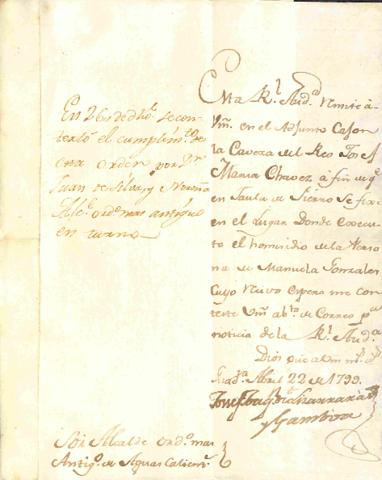 En 26 de dho. se con-
textó el cumplimto. de
esta orden por Dn.
Juan de Silva, y
Alce. ordo. mas antiguo
en turno
Esta Rl. Auda. remite à
Vm. en el adjunto Caxon
la Caveza del Reo Josef
Maria Chavez à fin de qe.
en Jaula de Fierro se fixe
en el Lugar Donde execu-
tó el homicidio de la Perso
na de Manuela Gonzalez
Cuyo Recivo espero me con
texte Vm. de Correo pa.
noticia de la Rl. Auda.
Dios gue. a Vm. ms. as.
Guada. Abril 22 de 1799.
y Gamboa
Sor. Alcalde Ordo. mas
Antigo. de Aguas Calients.